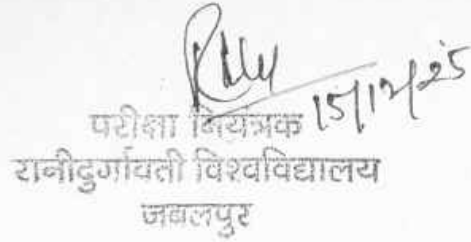 15/12/25
परीक्षा नियंत्रक
रानीदुर्गावती विश्वविद्यालय
जबलपुर